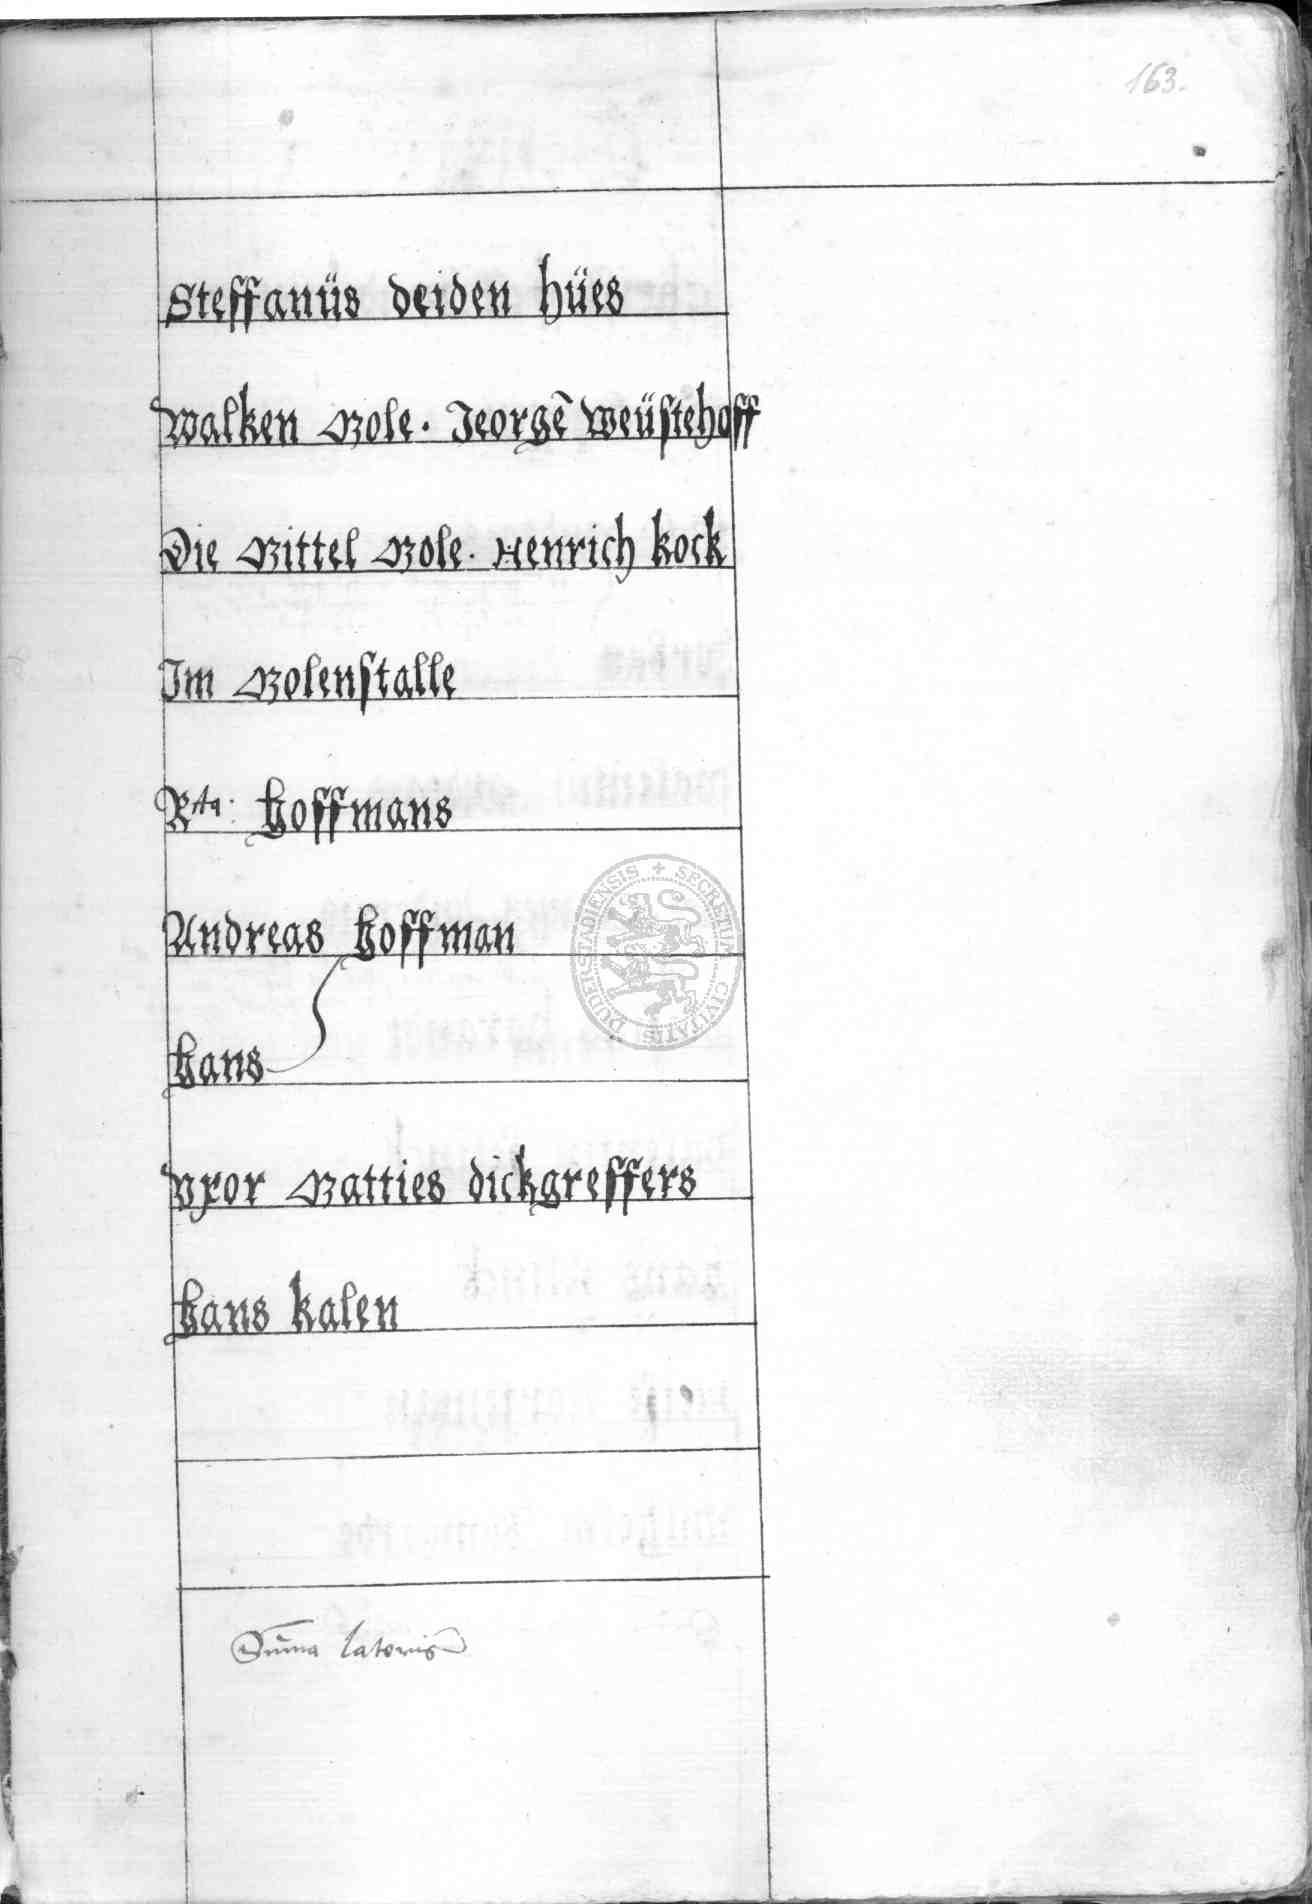 163.
Steffanüs deiden hües
Walken Mole. Jeorgē Weüstehoff
Die Mittel Mole. Henrich kock
Im Molenstalle
Hoffmans
Andreas Hoffman
Hans
Vxor Matties dickgreffers
Hans kalen
Sum̄a lateris
SECRETUM CIVITATIS DUDERSTADIENSIS